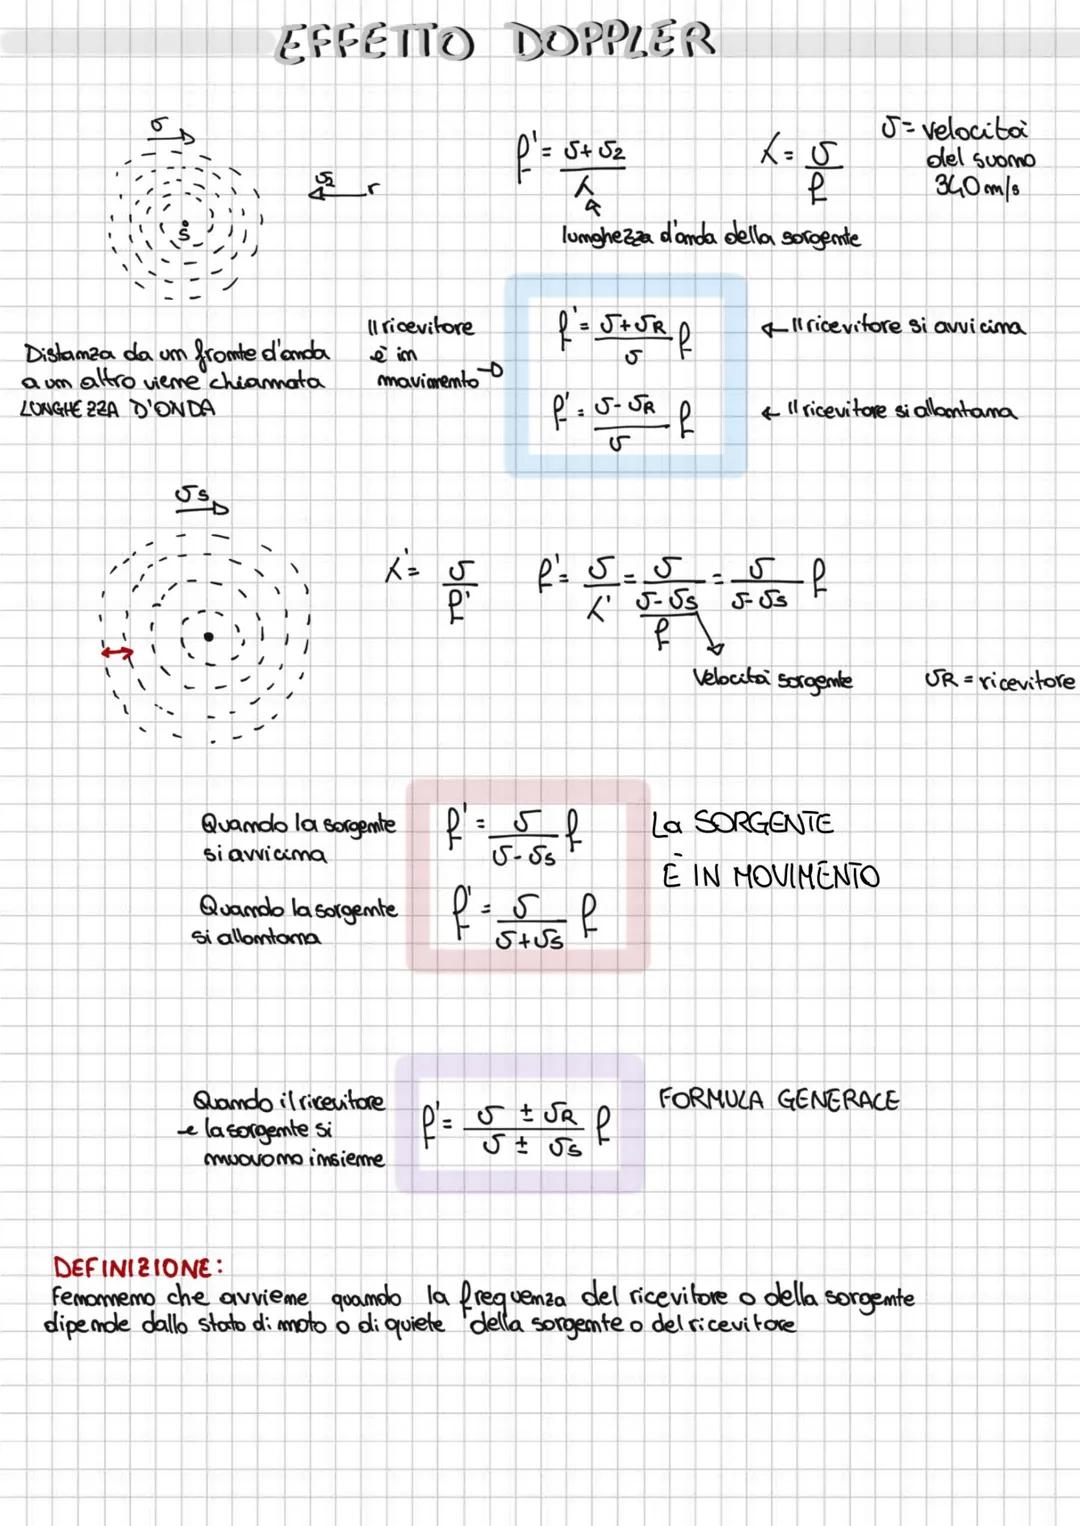 EFFETTO DOPPLER
v
v2 r
s
f' = v + v2 / λ
λ = v / f
v = velocità
del suono
340 m/s
lunghezza d'onda della sorgente
Distanza da un fronte d'onda
a un altro viene chiamata
LUNGHEZZA D'ONDA
Il ricevitore
è in
movimento
f' = v + vR / v f
← Il ricevitore si avvicina
f' = v - vR / v f
← Il ricevitore si allontana
vs
λ' = v / f'
f' = v / λ' = v / (v - vs / f) = v / v - vs f
Velocità sorgente
vR = ricevitore
Quando la sorgente
si avvicina
f' = v / v - vs f
La SORGENTE
È IN MOVIMENTO
Quando la sorgente
si allontana
f' = v / v + vs f
Quando il ricevitore
e la sorgente si
muovono insieme
f' = v ± vR / v ± vs f
FORMULA GENERALE
DEFINIZIONE:
Fenomeno che avviene quando la frequenza del ricevitore o della sorgente
dipende dallo stato di moto o di quiete della sorgente o del ricevitore